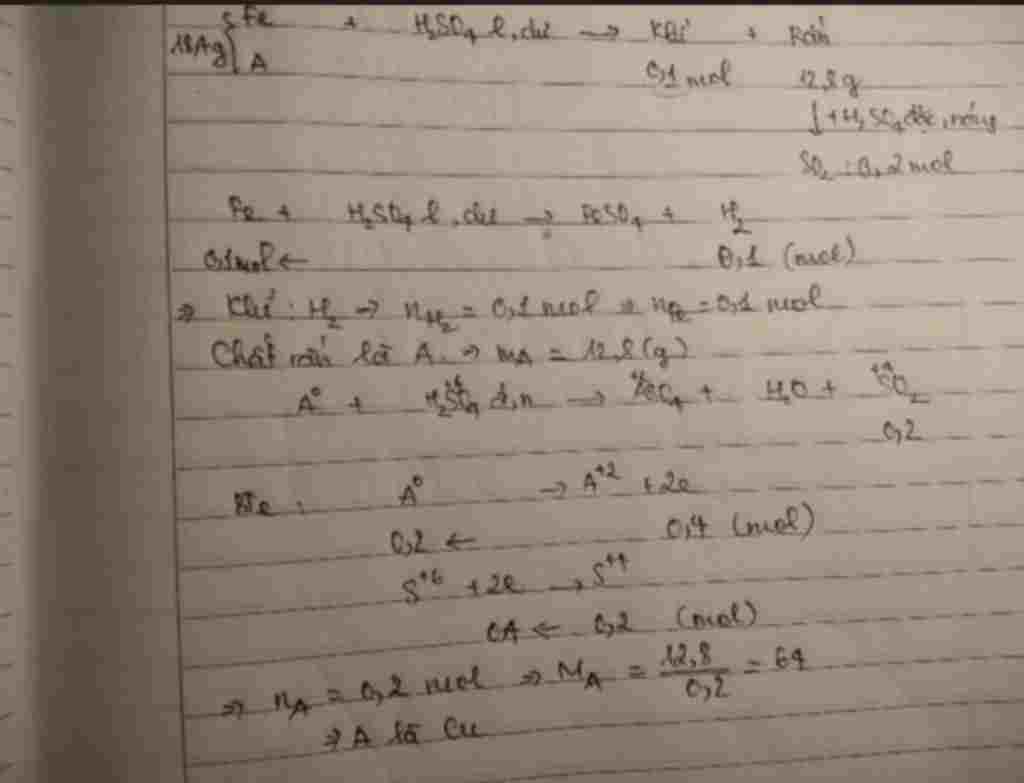 18,4g { Fe + H₂SO₄ l, dư → Khí + Rắn
A 0,1 mol 12,8g
↓ + H₂SO₄ đặc, nóng
SO₂ : 0,2 mol
Fe + H₂SO₄ l, dư → FeSO₄ + H₂
0,1 mol ← 0,1 (mol)
⇒ Khí : H₂ → nH₂ = 0,1 mol ⇒ nFe = 0,1 mol
Chất rắn là A. ⇒ mA = 12,8 (g)
A⁰ + H₂S⁺⁶O₄ đ,n → ASO₄ + H₂O + S⁺⁴O₂
0,2
A⁰ → A⁺² + 2e
0,2 ← 0,4 (mol)
S⁺⁶ + 2e → S⁺⁴
0,4 ← 0,2 (mol)
⇒ nA = 0,2 mol ⇒ MA = 12,8 / 0,2 = 64
⇒ A là Cu